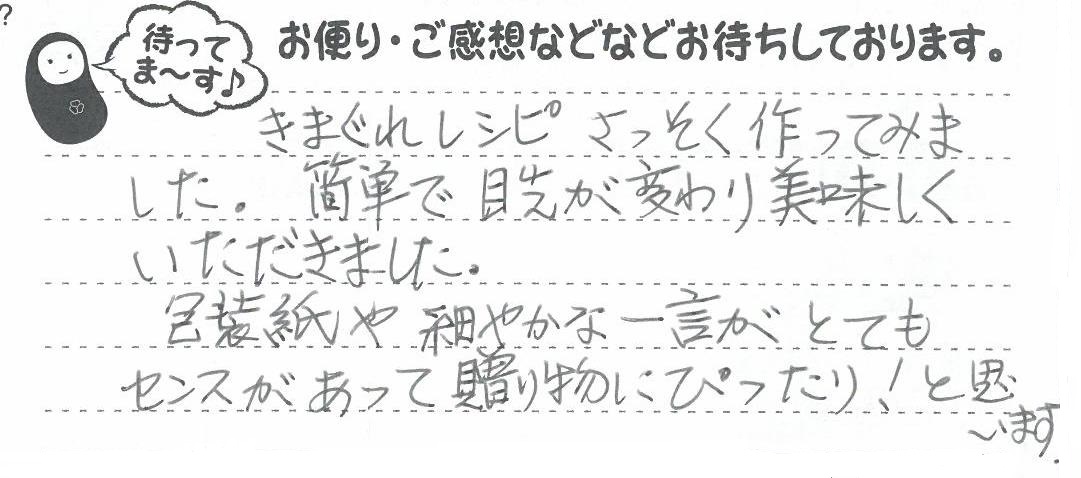 ?
待って
ま〜す♪
お便り・ご感想などなどお待ちしております。
きまぐれレシピ さっそく作ってみま
した。 簡単で目先が変わり美味しく
いただきました。
包装紙や細やかな一言がとても
センスがあって贈り物にぴったり!と思
います.